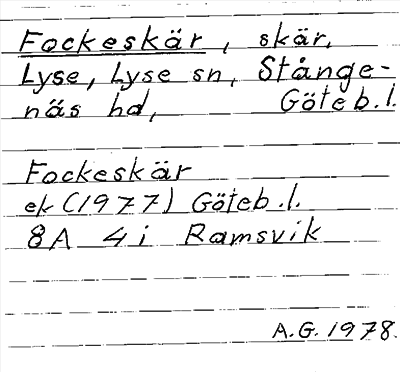 Fockeskär, skär,
Lyse, Lyse sn, Stånge-
näs hd, Göteb.l.
Fockeskär
ek (1977) Göteb.l.
8A 4i Ramsvik
A.G. 1978.